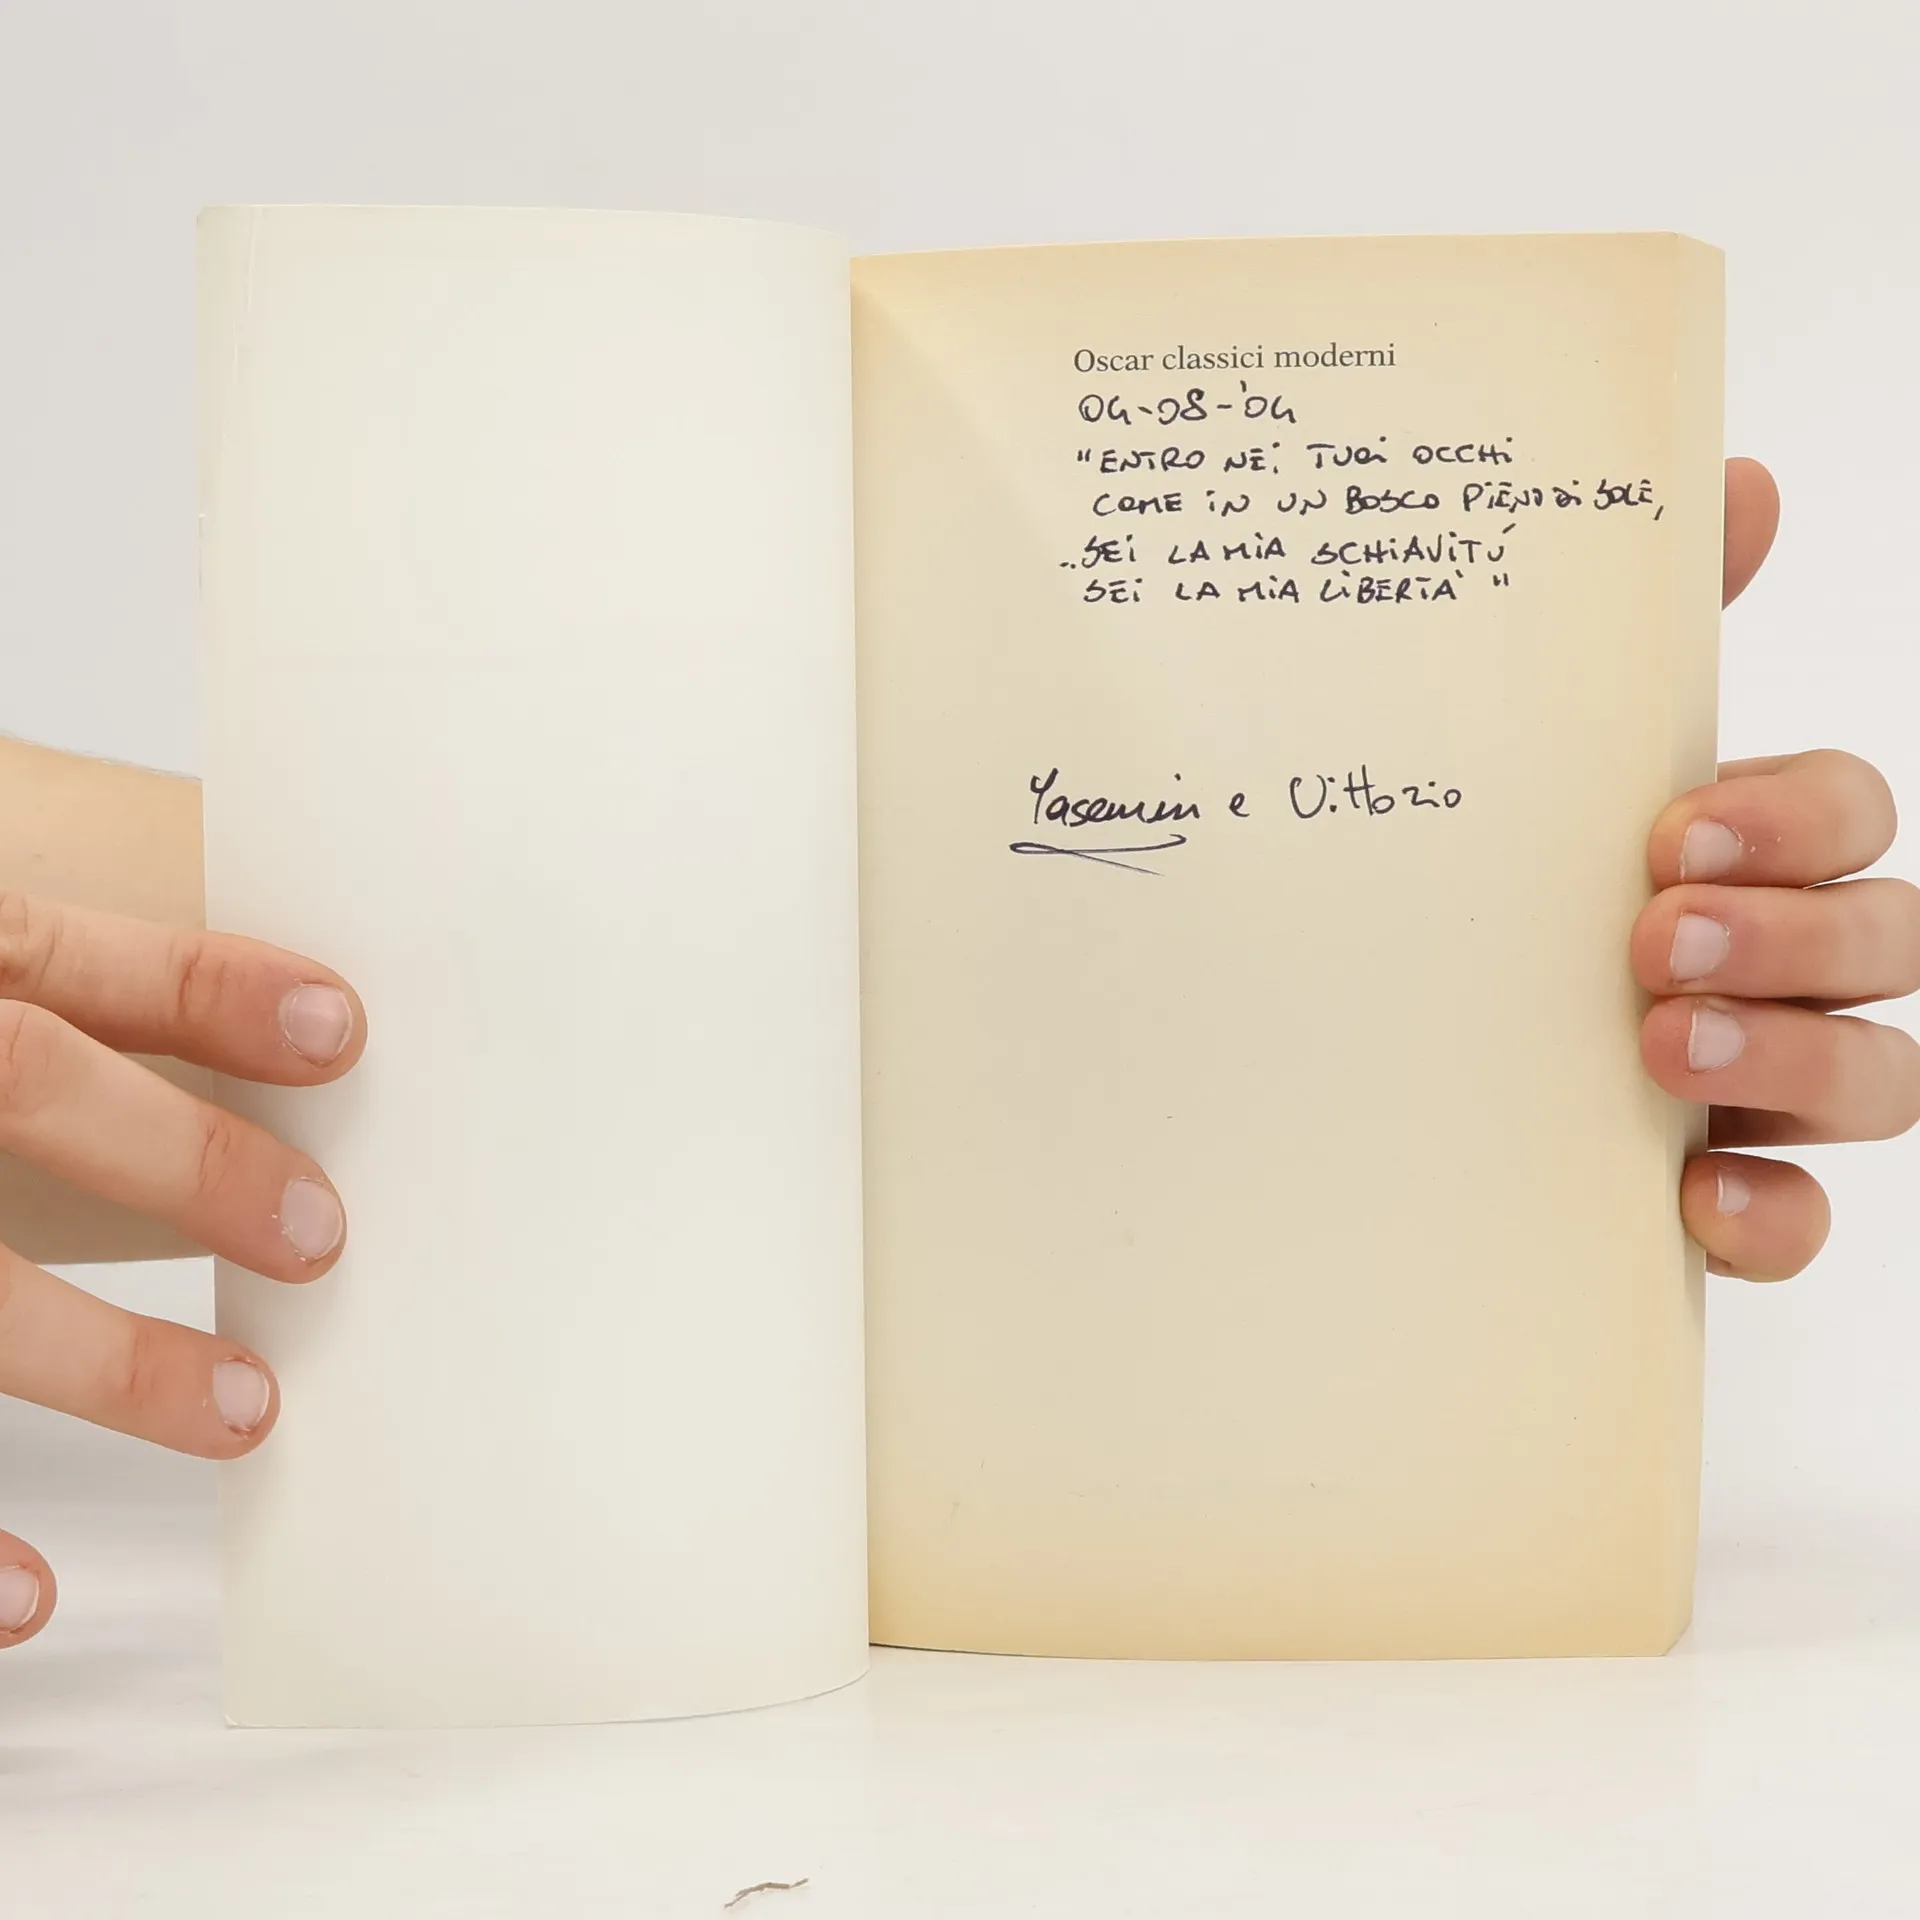 Oscar classici moderni
04-08-'04
"ENTRO NEi TUOi OCCHi
COME iN UN BOSCO PiENO Di SOLE,
..SEi LA MiA SCHiAViTÚ
SEi LA MiA LiBERTA' "
Yasemin e Vittorio